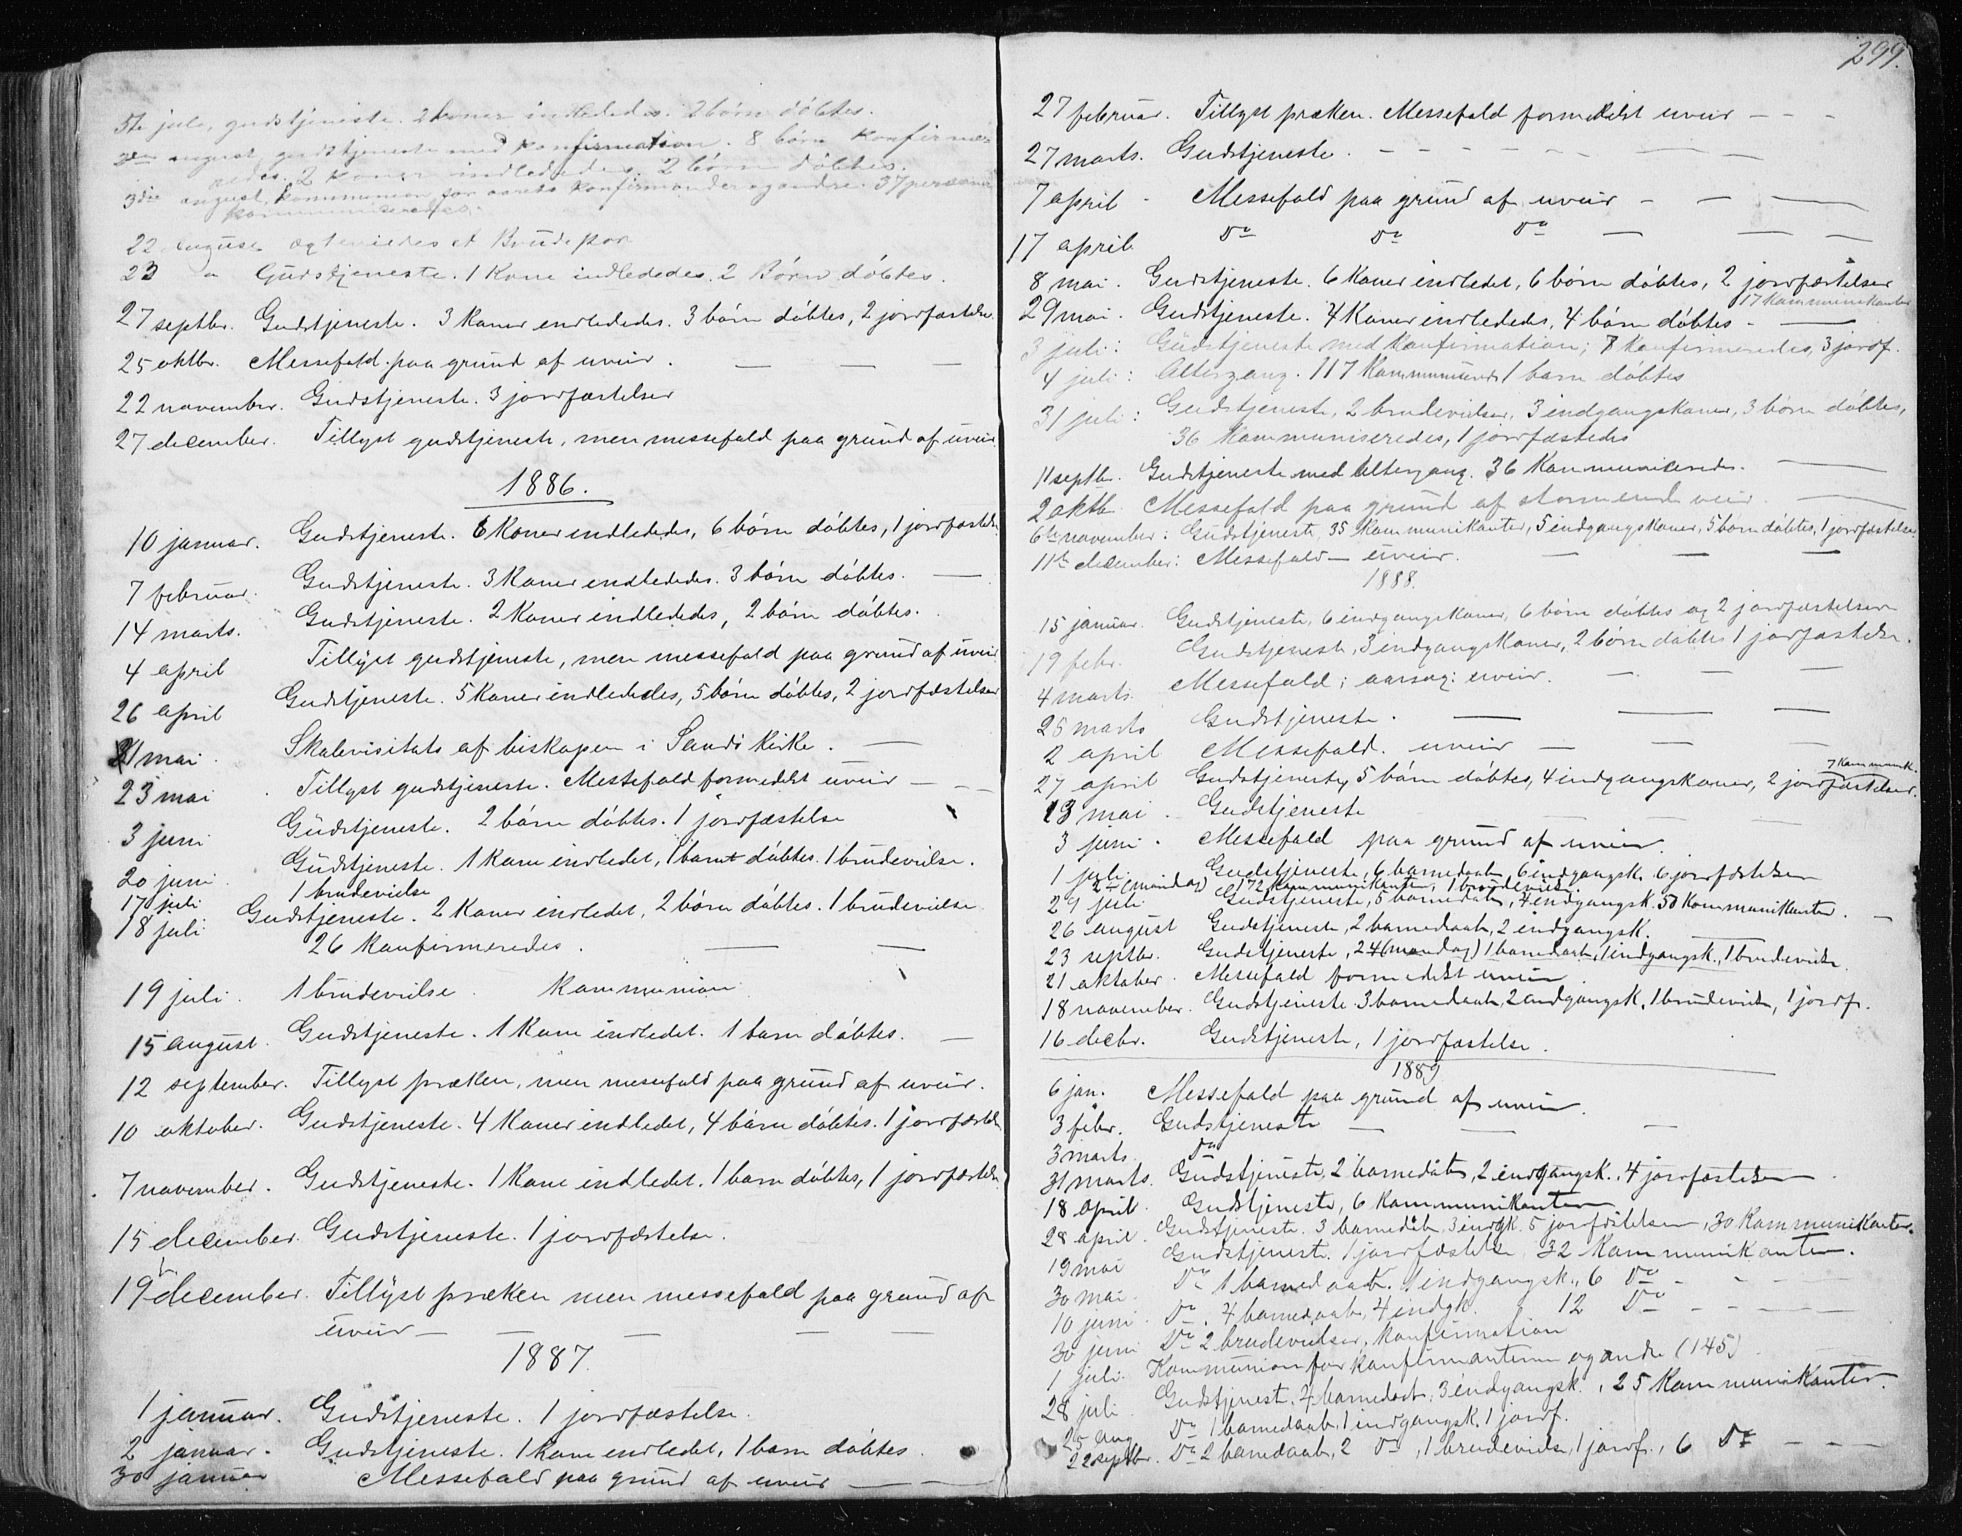 5te juli, gudstjeneste. 2 koner indlededes. 2 børn døbtes.
3die august, gudstjeneste med konfirmation. 8 børn konfirme-
redes. 2 koner indlededes. 2 børn døbtes.
3die august, kommunion for aarets konfirmander og andre. 37 personer
kommuniseredes.
22 august ægteviedes et Brudepar
23 " Gudstjeneste. 1 Kone indlededes. 2 Børn døbtes.
27 septbr. Gudstjeneste. 3 Koner indlededes. 3 børn døbtes, 2 jordfæstelse
25 oktbr. Messefald paa grund af uveir. — — —
22 november. Gudstjeneste. 3 jordfæstelser
27 december. Tillyst gudstjeneste, men messefald paa grund af uveir
1886.
10 januar. Gudstjeneste. 6 Koner indlededes, 6 børn døbtes, 1 jordfæstelse
7 februar. Gudstjeneste. 3 Koner indlededes. 3 børn døbtes. —
14 marts. Gudstjeneste. 2 Koner indlededes, 2 børn døbtes.
4 april Tillyst gudstjeneste, men messefald paa grund af uveir
26 april Gudstjeneste. 5 Koner indlededes, 5 børn døbtes, 2 jordfæstelser
21 mai. Skolevisitats af biskopen i Sands Kirke. —
23 mai. Tillyst gudstjeneste. Messefald formedelst uveir — — —
3 juni Gudstjeneste. 2 børn døbtes. 1 jordfæstelse
20 juni. Gudstjeneste. 1 Kone indledet, 1 barn døbtes. 1 brudevielse.
17 juli 1 brudevielse
18 juli. Gudstjeneste. 2 Koner indledet, 2 børn døbtes. 1 brudevielse
26 Konfirmeredes. — —
19 juli. 1 brudevielse. Kommunion
15 august. Gudstjeneste. 1 Kone indledet. 1 barn døbtes. —
12 september. Tillyst præken, men messefald paa grund af uveir.
10 oktober. Gudstjeneste. 4 Koner indledet, 4 børn døbtes. 1 jordfæstelse
7 november. Gudstjeneste. 1 Kone indledet. 1 barn døbtes, 1 jordfæstelse
15 december. Gudstjeneste. 1 jordfæstelse.
19 december. Tillyst præken men messefald paa grund af
uveir — — — — —
1887.
1 januar. Gudstjeneste. 1 jordfæstelse.
2 januar. Gudstjeneste. 1 Kone indledet, 1 barn døbtes
30 januar Messefald paa grund af uveir — —
299.
27 februar. Tillyst præken. Messefald formedelst uveir — — —
27 marts. Gudstjeneste. — — — — —
7 april - Messefald paa grund af uveir — — —
17 april Do Do Do — — —
8 mai. Gudstjeneste. 6 Koner indledet, 6 børn døbtes, 2 jordfæstelser
17 Kommunikanter
29 mai. Gudstjeneste. 4 Koner indlededes, 4 børn døbtes - —
3 juli: Gudstjeneste med Konfirmation; 8 Konfirmeredes, 3 jordf.
4 juli: Altergang. 117 Kommunic. 1 barn døbtes
31 juli: Gudstjeneste, 2 brudevielser, 3 indgangskoner, 3 børn døbtes,
36 Kommuniseredes, 1 jordfæstedes
11 septbr. Gudstjeneste med altergang. 36 Kommuniceredes. —
2 oktb. Messefald paa grund af stormende veir. —
6te november: Gudstjeneste, 35 Kommunikanter, 5 indgangskoner, 5 børn døbtes, 1 jordfæstelse
11te december: Messefald — uveir. — — —
1888.
15 januar. Gudstjeneste, 6 indgangskoner, 6 børn døbtes og 2 jordfæstelser
19 febr. Gudstjeneste, 3 indgangskoner, 2 børn døbtes 1 jordfæstelse.
4 marts. Messefald; aarsag: uveir. — — —
25 marts Gudstjeneste. — — —
2 april Messefald. uveir — — —
7 Kommunik.
27 april Gudstjeneste, 5 børn døbtes, 4 indgangskoner, 2 jordfæstelser.
13 mai. Gudstjeneste — — —
3 juni. Messefald paa grund af uveir.
1 juli Gudstjeneste, 6 barnedaab, 6 indgangsk. 6 jordfæstelser
2den (mandag) 172 Kommunikanter, 1 brudevielse.
29 juli Gudstjeneste, 5 barnedaab, 4 indgangsk. 50 Kommunikanter. —
26 august Gudstjeneste, 2 barnedaab, 2 indgangsk. —
23 septbr. Gudstjeneste, 24 (mandag) 1 barnedaab, 1 indgangsk., 1 brudevielse.
21 oktober. Messefald formedelst uveir
18 november. Gudstjeneste 3 barnedaab, 2 indgangsk, 1 brudevielse, 1 jordf.
16 decbr. Gudstjeneste, 1 jordfæstelse.
1889
6 jan. Messefald paa grund af uveir.
3 febr. Gudstjeneste — — —
3 marts. Do
31 marts. Gudstjeneste, 2 barnedåb, 2 indgangsk., 4 jordfæstelser
18 april. Gudstjeneste, 6 Kommunikanter
28 april. Gudstjeneste. 3 barnedåb, 3 indgk. 5 jordfæstelser, 30 Kommunikanter.
19 mai Gudstjenest. 1 jordfæstelse, 32 Kommunikanter.
30 mai. Do 1 barnedaab. 1 indgangsk., 6 Do - - - -
10 juni. Do. 4 barnedaab, 4 indgk. 12 Do - - - -
30 juni Do 2 brudevielser, Konfirmation
1 juli. Kommunion for konfirmanterne og andre (145)
28 juli Gudstjenest. 4 barnedaab, 3 indgangsk., 25 Kommunikanter.
25 aug. Do 1 barnedaab, 1 indgangsk. 1 jordf.
22 septbr. Do 2 barnedaab, 2 Do, 1 brudevielse, 1 jordf., 6 Do - - -